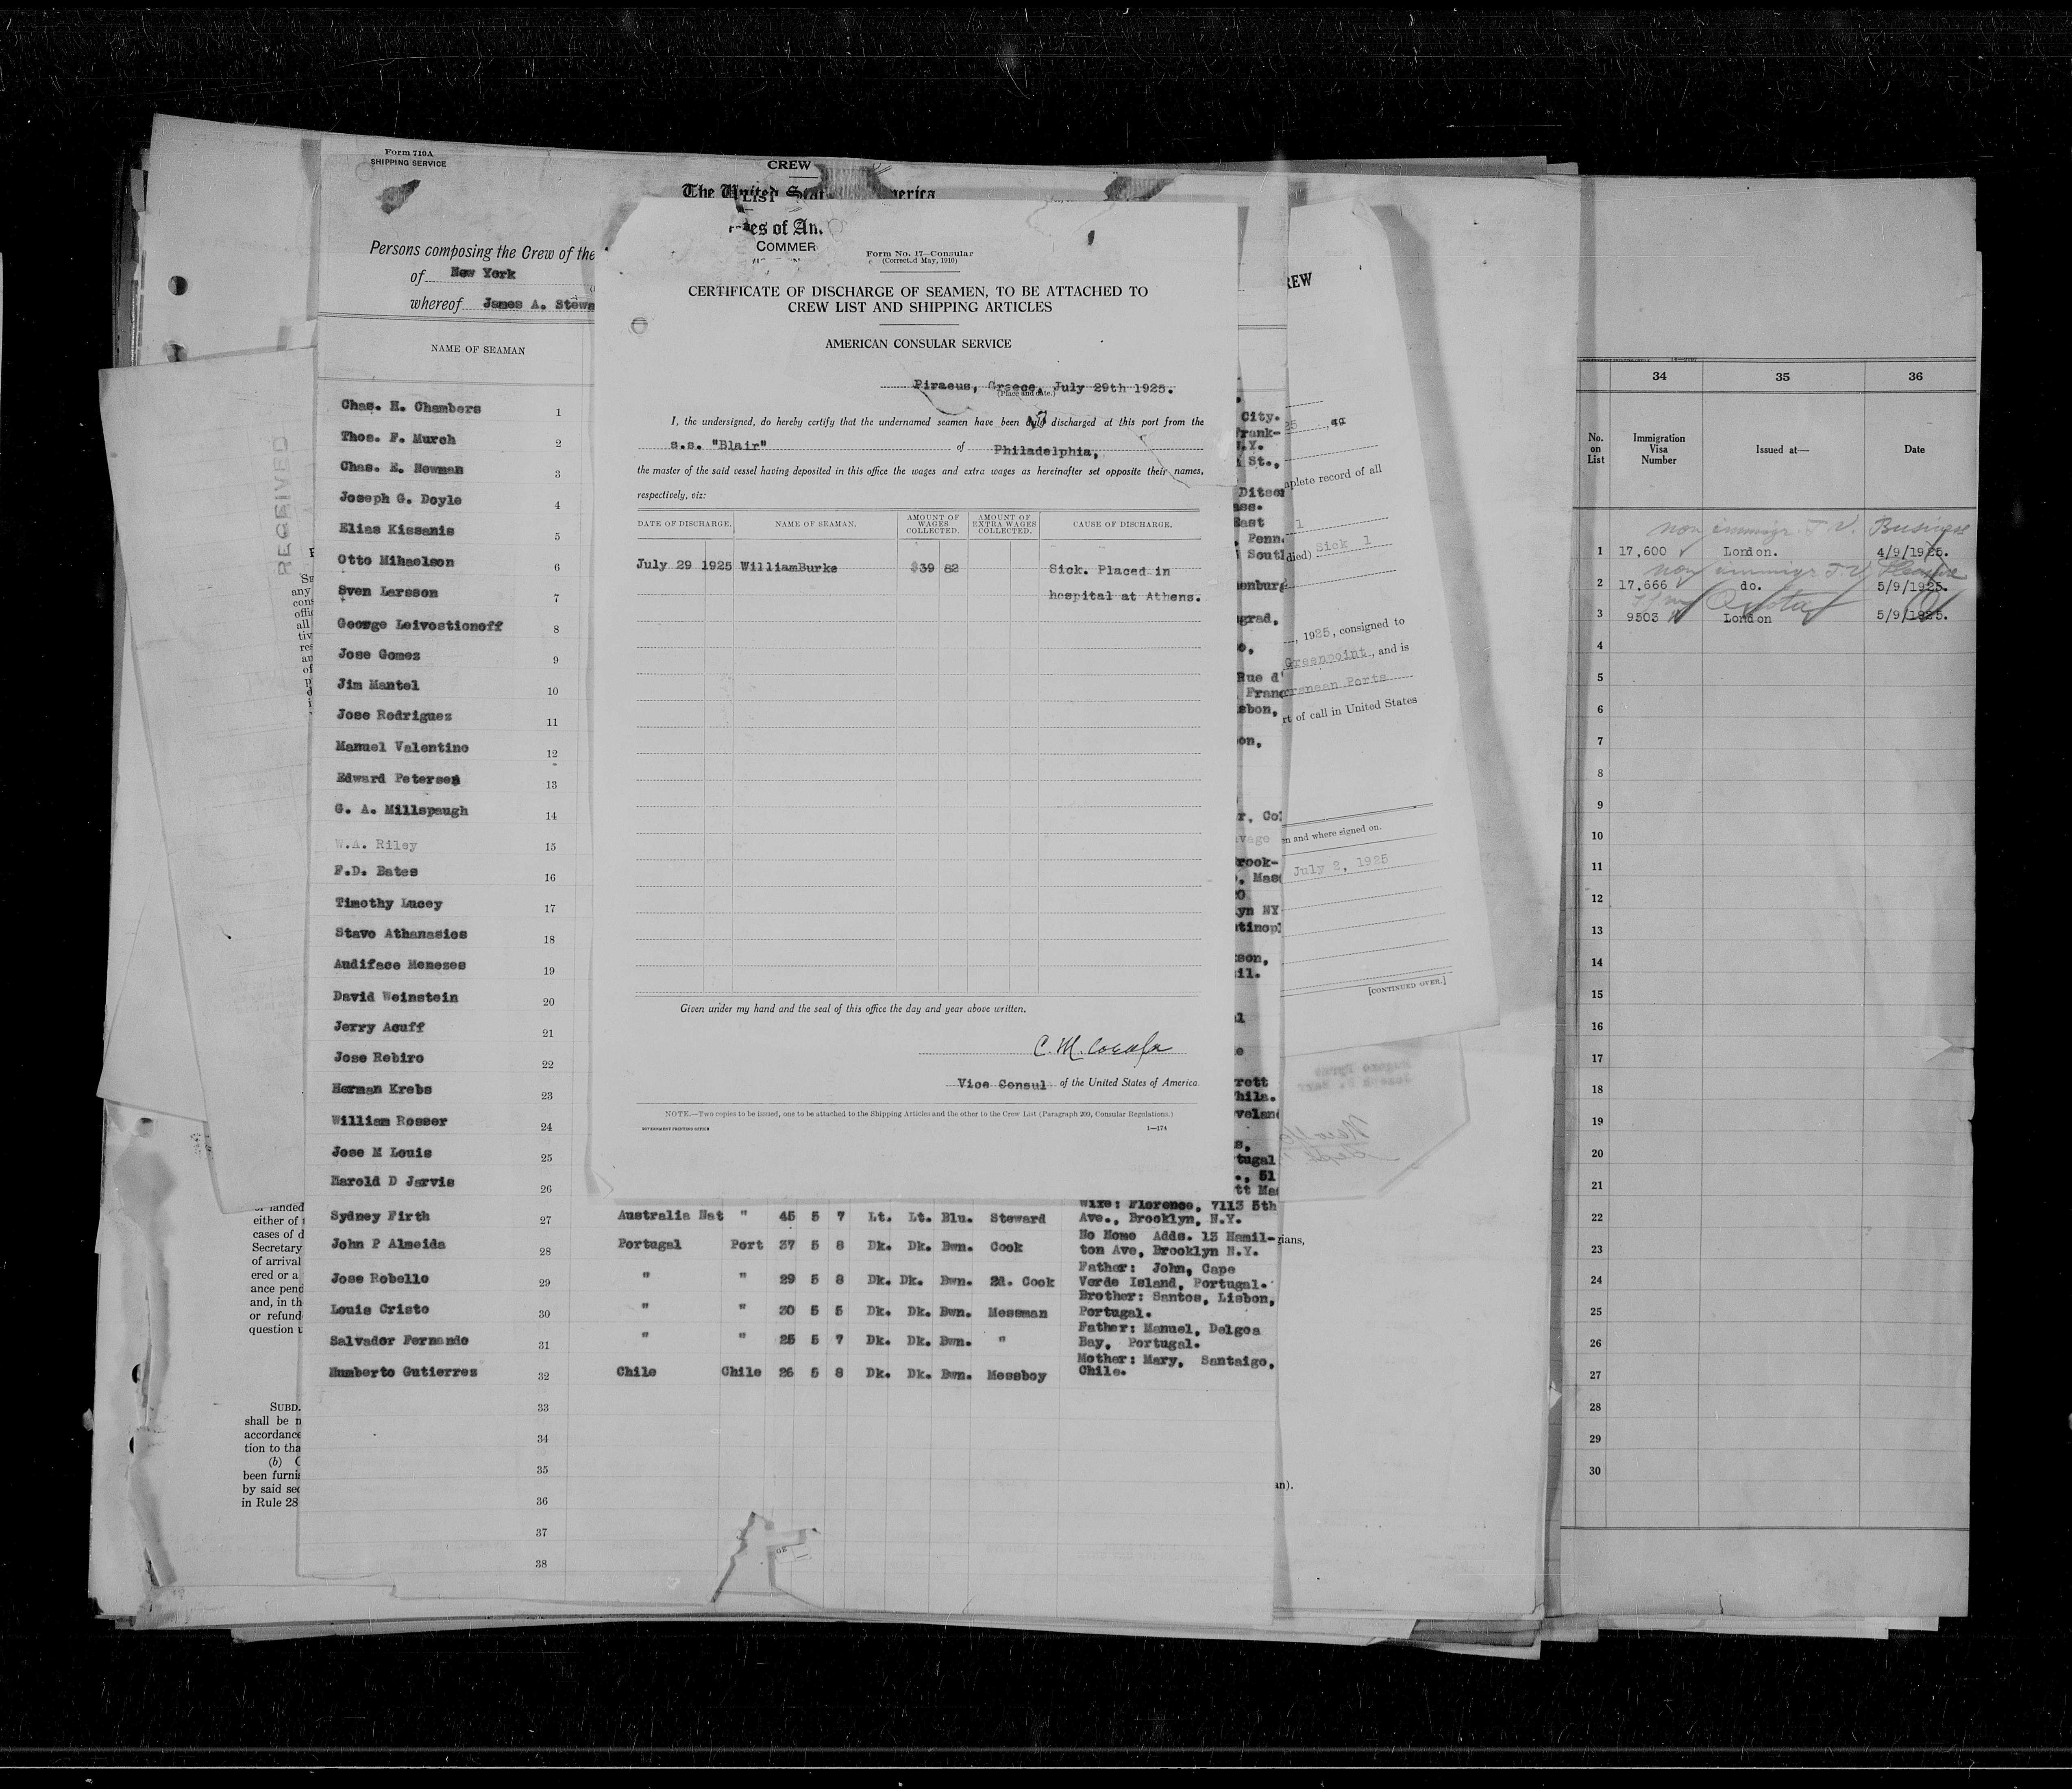 Form 710A
SHIPPING SERVICE
CREW
LIST
The United Stat
erica
es of Am
COMMER
Persons composing the Crew of the
of New York
whereof James A. Stewa
NAME OF SEAMAN
Chas. H. Chambers 1
Thos. F. Murch 2
Chas. E. Newman 3
Joseph G. Doyle 4
Elias Kissanis 5
Otto Mihaelson 6
Sven Larsson 7
George Leivostionoff 8
Jose Gomez 9
Jim Mantel 10
Jose Rodriguez 11
Manuel Valentino 12
Edward Petersen 13
G. A. Millspaugh 14
W.A. Riley 15
F.D. Bates 16
Timothy Lucey 17
Stavo Athanasios 18
Audiface Meneses 19
David Weinstein 20
Jerry Acuff 21
Jose Rebiro 22
Herman Krebs 23
William Rosser 24
Jose M Louis 25
Harold D Jarvis 26
Wife: Florence, 7113 5th
Sydney Firth 27 Australia Nat " 45 5 7 Lt. Lt. Blu. Steward Ave., Brooklyn, N.Y.
No Home Adds. 13 Hamil-
John P Almeida 28 Portugal Port 37 5 8 Dk. Dk. Bwn. Cook ton Ave, Brooklyn N.Y.
Father: John, Cape
Jose Robello 29 " " 29 5 8 Dk. Dk. Bwn. 2d. Cook Verde Island, Portugal.
Brother: Santos, Lisbon,
Louis Cristo 30 " " 30 5 5 Dk. Dk. Bwn. Messman Portugal.
Father: Manuel, Delgoa
Salvador Fernando 31 " " 25 5 7 Dk. Dk. Bwn. " Bay, Portugal.
Mother: Mary, Santaigo,
Humberto Gutierres 32 Chile Chile 26 5 8 Dk. Dk. Bwn. Messboy Chile.
33
34
35
36
37
38
Form No. 17—Consular
(Corrected May, 1910)
CERTIFICATE OF DISCHARGE OF SEAMEN, TO BE ATTACHED TO
CREW LIST AND SHIPPING ARTICLES
AMERICAN CONSULAR SERVICE
Piraeus, Greece, July 29th 1925.
(Place and date.)
I, the undersigned, do hereby certify that the undernamed seamen have been duly discharged at this port from the
s.s. "Blair" of Philadelphia,
the master of the said vessel having deposited in this office the wages and extra wages as hereinafter set opposite their names,
respectively, viz:
DATE OF DISCHARGE. NAME OF SEAMAN. AMOUNT OF WAGES COLLECTED. AMOUNT OF EXTRA WAGES COLLECTED. CAUSE OF DISCHARGE.
July 29 1925 WilliamBurke $39 82 Sick. Placed in
hospital at Athens.
Given under my hand and the seal of this office the day and year above written.
Vice Consul of the United States of America
NOTE.—Two copies to be issued, one to be attached to the Shipping Articles and the other to the Crew List (Paragraph 209, Consular Regulations.)
GOVERNMENT PRINTING OFFICE 1—174
RECEIVED
either of
cases of d
Secretary
of arrival
ered or a
ance pend
and, in th
or refund
question u
SUBD.
shall be n
accordance
tion to tha
(b) C
been furni
by said sec
in Rule 28
City.
rank-
N.Y.
St.,
Ditson
ass.
East
Penn.
South
enburg
grad,
Rue d'
Franc
sbon,
on,
r, Col
vage
rook-
, Mass
yn NY
tinop
son,
il.
rett
hila.
veland
tugal
., 51
tt Mas
REW
25
plete record of all
1
died) Sick 1
, 1925, consigned to
Greenpoint, and is
rranean Ports
rt of call in United States
en and where signed on.
July 2, 1925
[CONTINUED OVER.]
gians,
an).
34 35 36
No. on List Immigration Visa Number Issued at— Date
non immigr. T.V. Business
1 17,600 London. 4/9/1925.
non immigr T.V. Pleasure
2 17,666 do. 5/9/1925.
3 9503 London 5/9/1925.
4
5
6
7
8
9
10
11
12
13
14
15
16
17
18
19
20
21
22
23
24
25
26
27
28
29
30